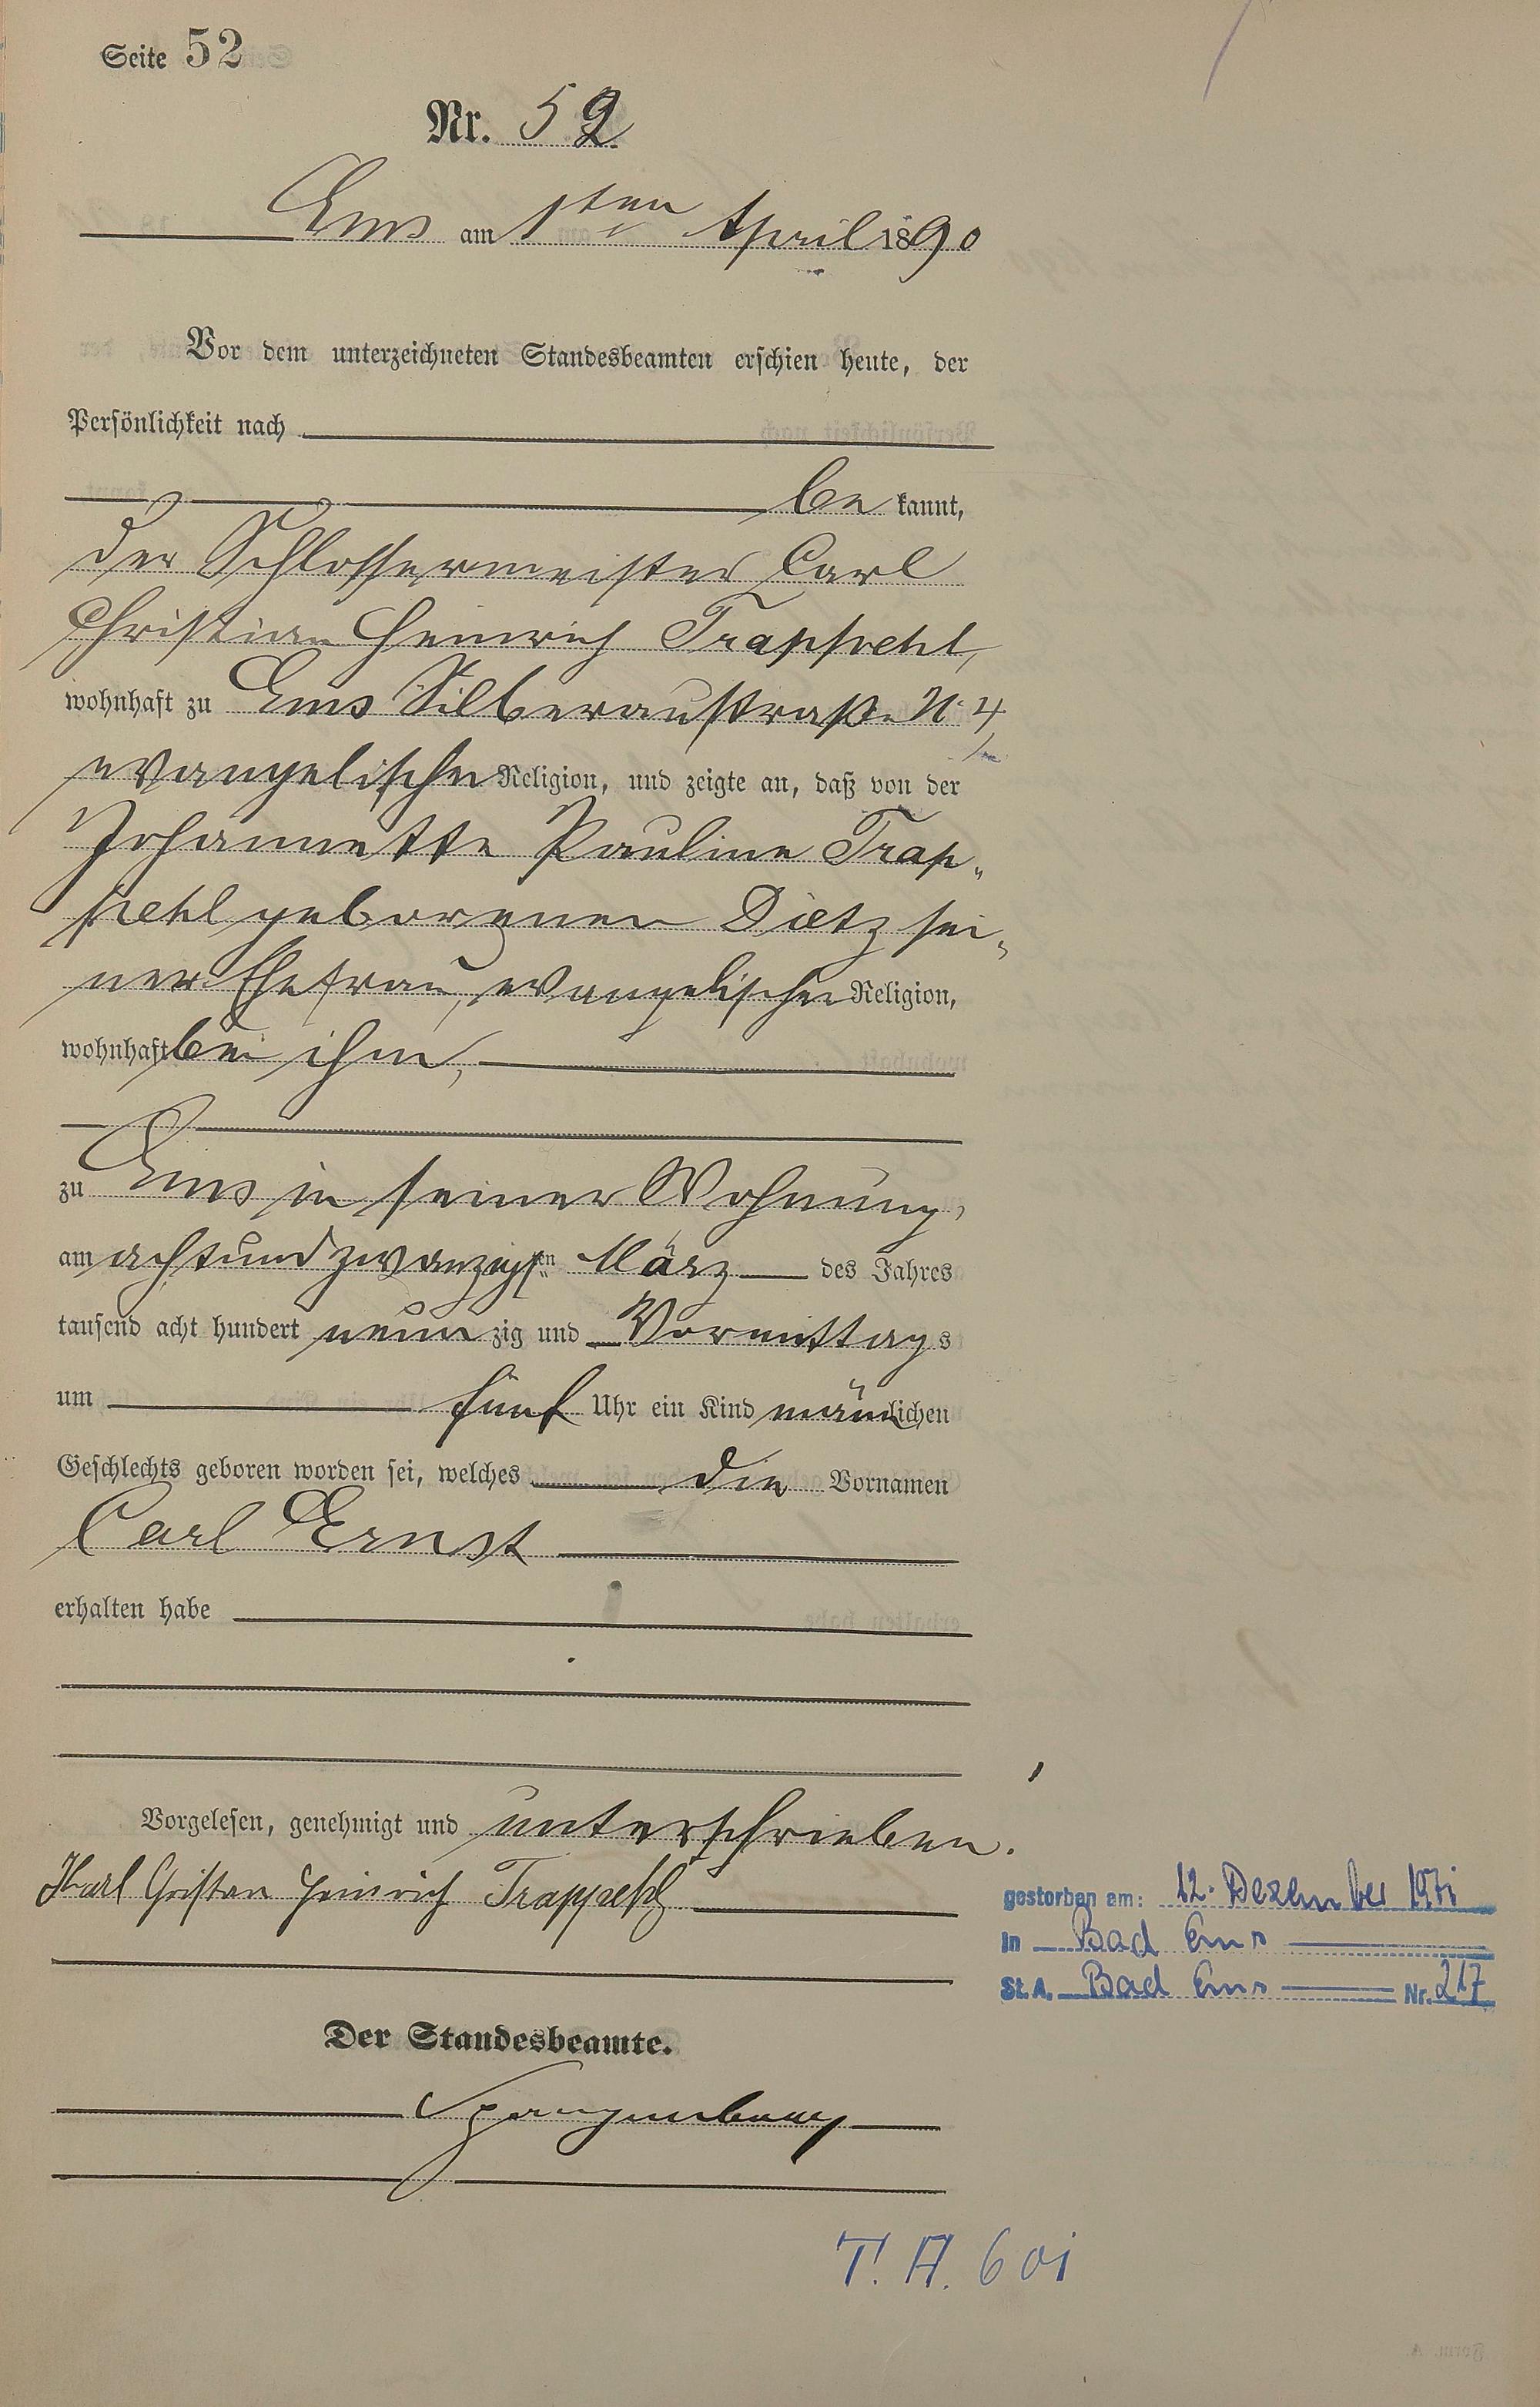 Seite 52
Nr. 52
Ems am 1ten April 1890
Vor dem unterzeichneten Standesbeamten erschien heute, der
Persönlichkeit nach
be kannt,
der Schlossermeister Carl
Christian Heinrich Trappehl,
wohnhaft zu Ems Silberaustraße N. 4,
evangelischer Religion, und zeigte an, daß von der
Johannette Pauline Trap-
pehl geborenen Dietz sei-
ner Ehefrau, evangelischer Religion,
wohnhaft bei ihm,
zu Ems in seiner Wohnung,
am achtundzwanzigsten März des Jahres
tausend acht hundert neunzig und Vormittags
um fünf Uhr ein Kind männlichen
Geschlechts geboren worden sei, welches die Vornamen
Carl Ernst
erhalten habe
Vorgelesen, genehmigt und unterschrieben.
Karl Christian Heinrich Trappehl
gestorben am: 12. Dezember 1971
in Bad Ems
St. A. Bad Ems Nr. 217
Der Standesbeamte.
Spangenberg
T. A. 601